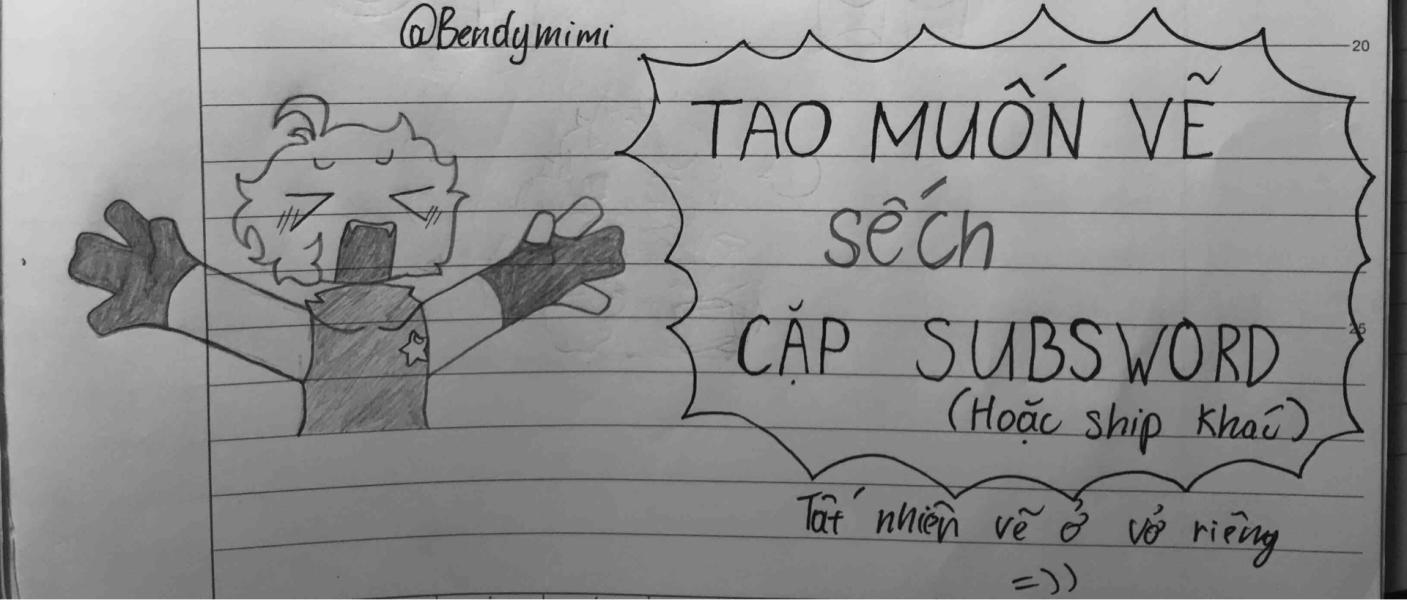 @Bendymimi
20
TAO MUỐN VẼ
sếch
CẶP SUBSWORD
25
(Hoặc ship khác)
Tất nhiên vẽ ở vở riêng
=))